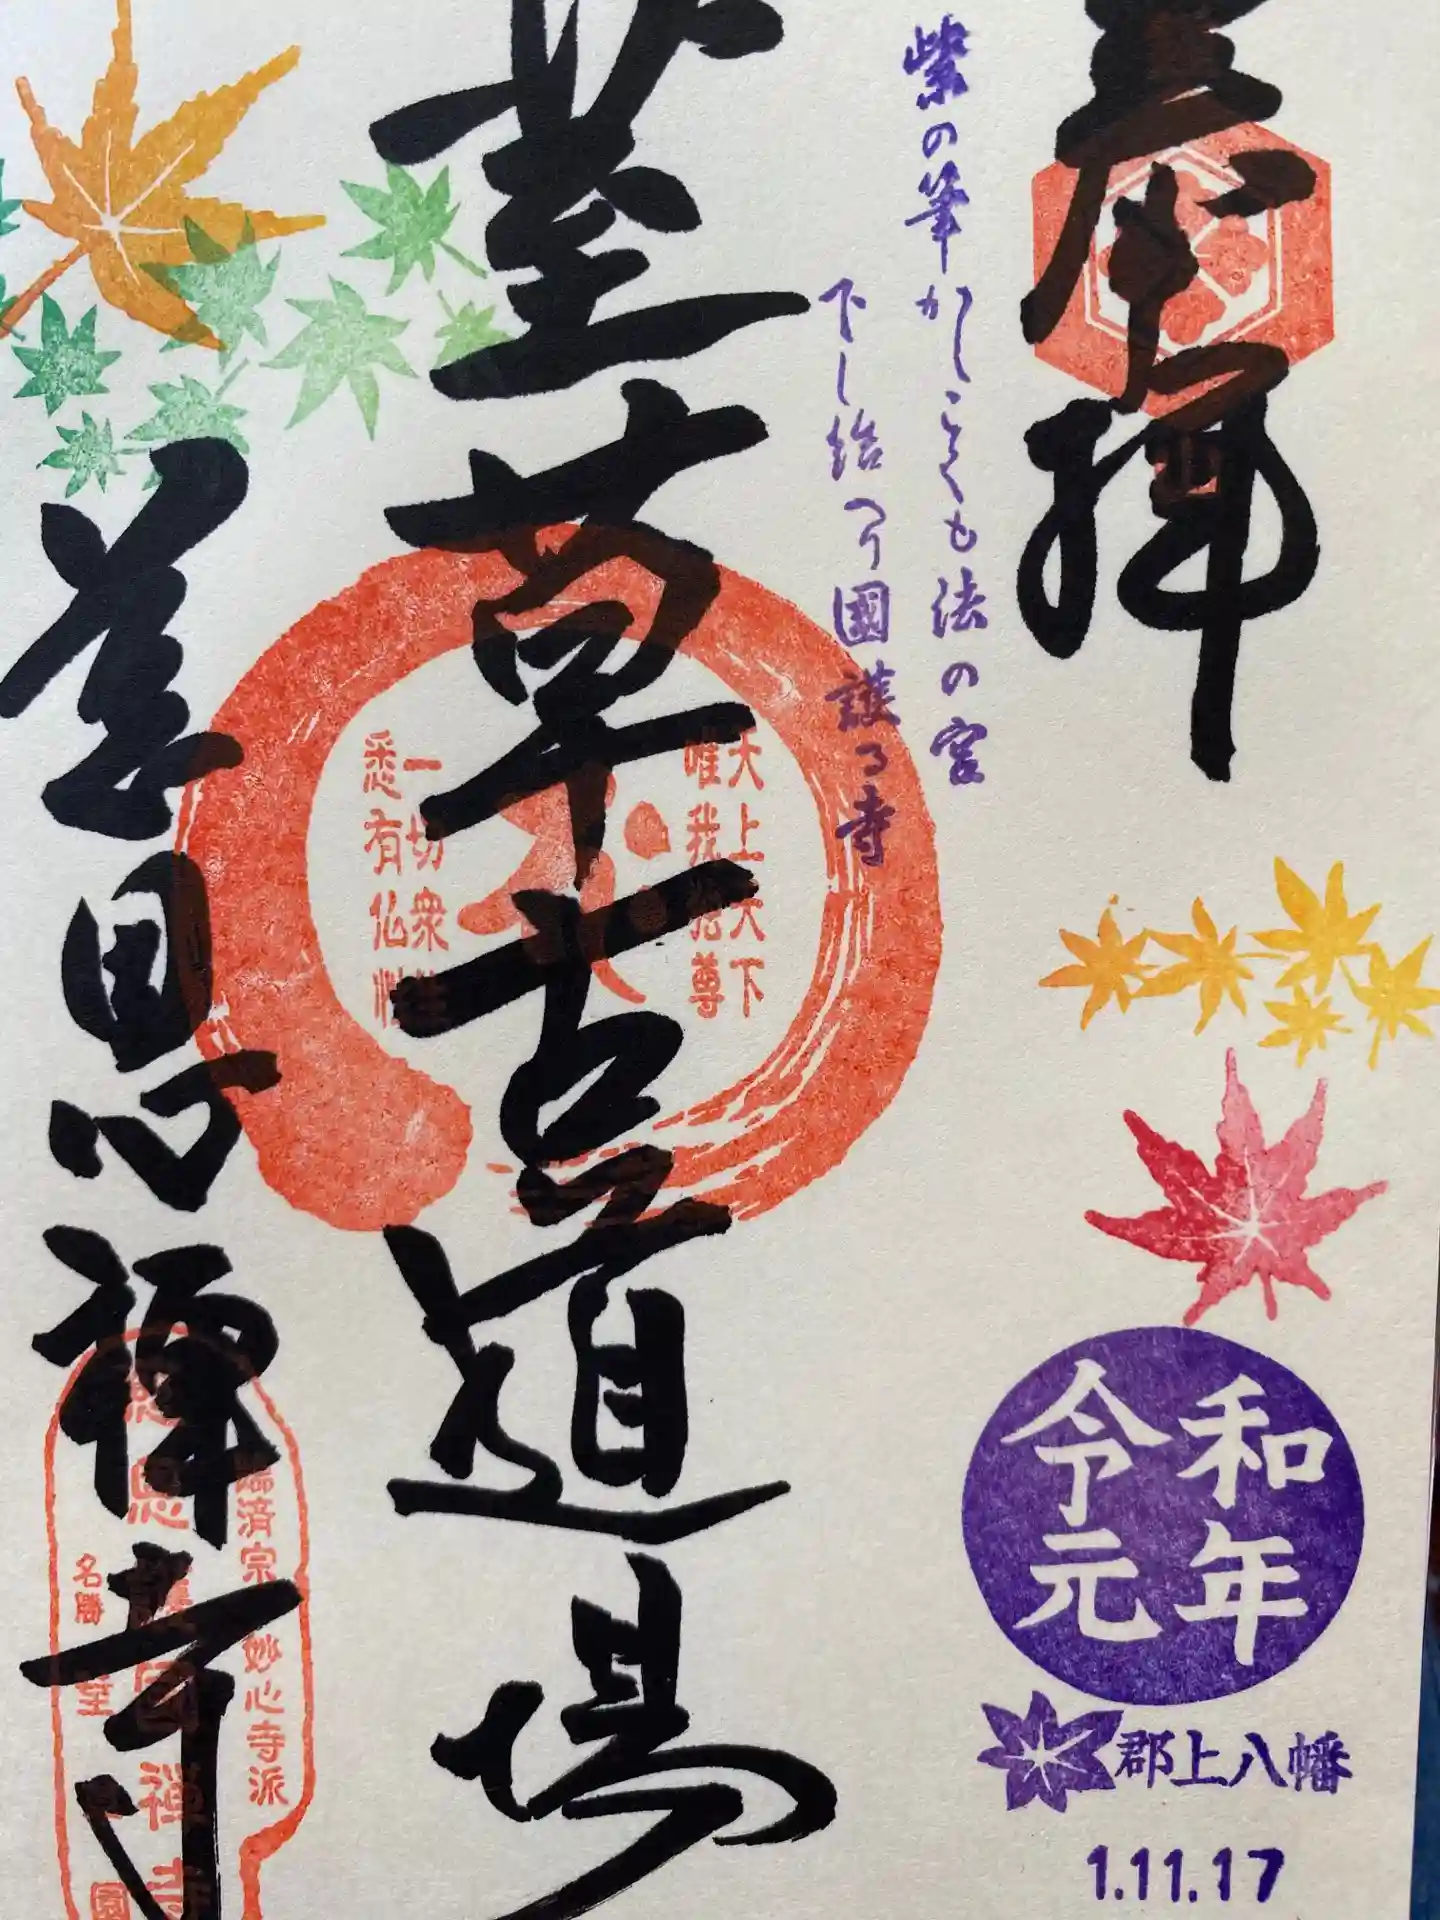 奉拝
紫の筆かしこくも法の宮
下し給へり國護る寺
荎草古道場
天上天下
唯我独尊
一切衆生
悉有仏性
慈恩禅寺
臨済宗妙心寺派
慈恩護國禅寺
名勝 荎 園
令和
元年
郡上八幡
1.11.17